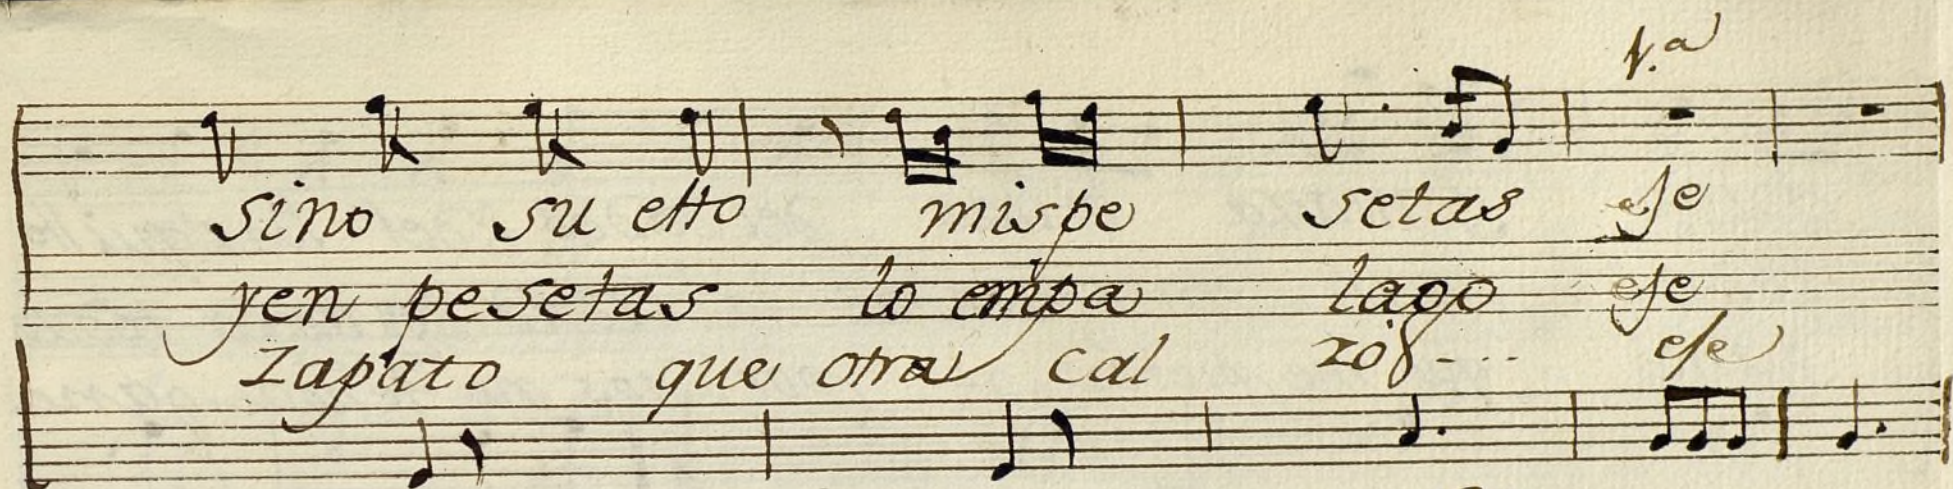 1.a
sino su elto mispe setas ese
yen pesetas lo empa lago ese
Zapato que otra cal zo ese